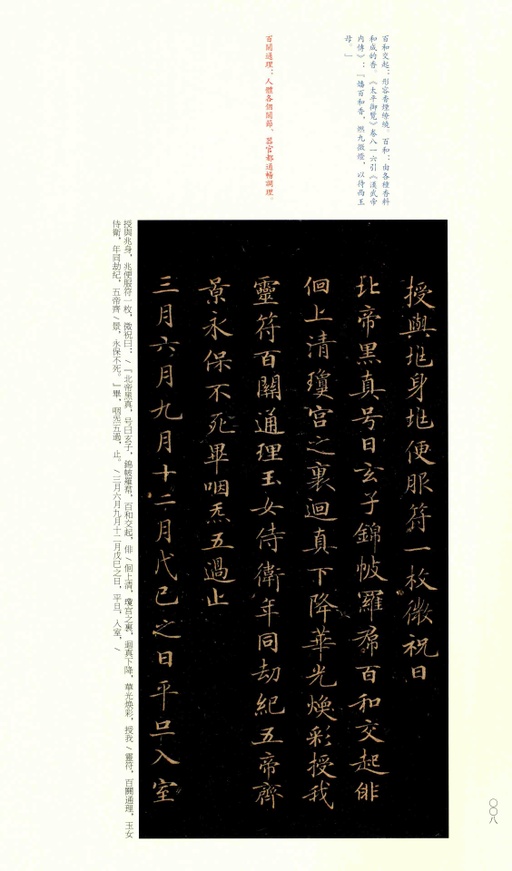 百和交起：形容香煙繚繞。百和：由各種香料
和成的香。《太平御覽》卷八一六引《漢武帝
內傳》：「燔百和香，燃九微燈，以待西王
母。」
百關通理：人體各個關節、器官都通暢調理。
授與兆身兆便服符一枚微祝曰
北帝黑真号曰玄子錦帔羅帬百和交起俳
佪上清瓊宮之裏迴真下降華光煥彩授我
靈符百關通理玉女侍衛年同劫紀五帝齊
景永保不死畢咽炁五過止
三月六月九月十二月戊己之日平旦入室
授與兆身，兆便服符一枚，微祝曰：／「北帝黑真，号曰玄子，錦帔羅帬，百和交起，俳／佪上清，瓊宮之裏，迴真下降，華光煥彩，授我／靈符，百關通理，玉女
侍衛，年同劫紀，五帝齊／景，永保不死。」畢，咽炁五過，止。／三月六月九月十二月戊己之日，平旦，入室，／
〇〇八